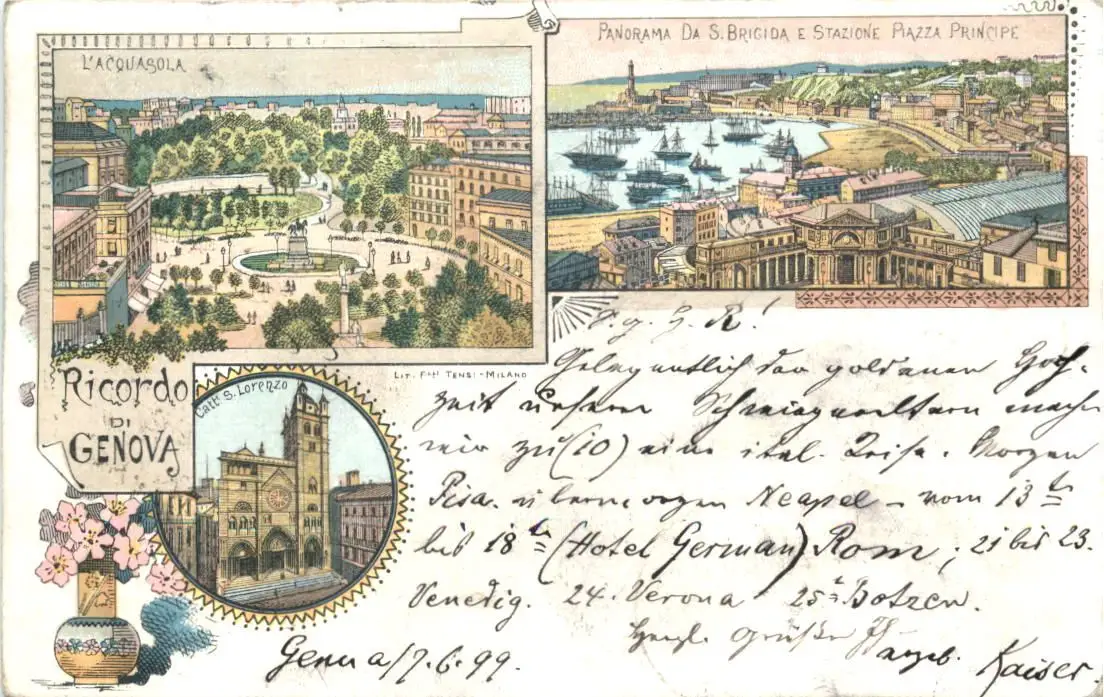 L'ACQUASOLA
PANORAMA DA S. BRIGIDA E STAZIONE PIAZZA PRINCIPE
LIT. F.LLI TENSI - MILANO
RICORDO
DI
GENOVA
CATT. S. LORENZO
Gelegentlich der goldenen Hoch-
zeit unserer Schwiegereltern machen
wir zu (10) eine ital. Reise. Morgen
Pisa. übermorgen Neapel – vom 13ten
bis 18ten (Hotel German) Rom; 21 bis 23.
Venedig. 24. Verona 25. Botzen.
Herzl. Grüße Ihr
ergeb. Kaiser.
Genua/7.6.99.